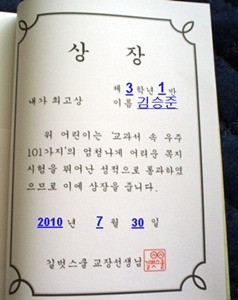 상장
제 3 학년 1 반
내가 최고상
이름 김승준
위 어린이는 '교과서 속 우주
101가지'의 엄청나게 어려운 쪽지
시험을 뛰어난 성적으로 통과하였
으므로 이에 상장을 줍니다.
2010 년 7 월 30 일
길벗스쿨 교장선생님